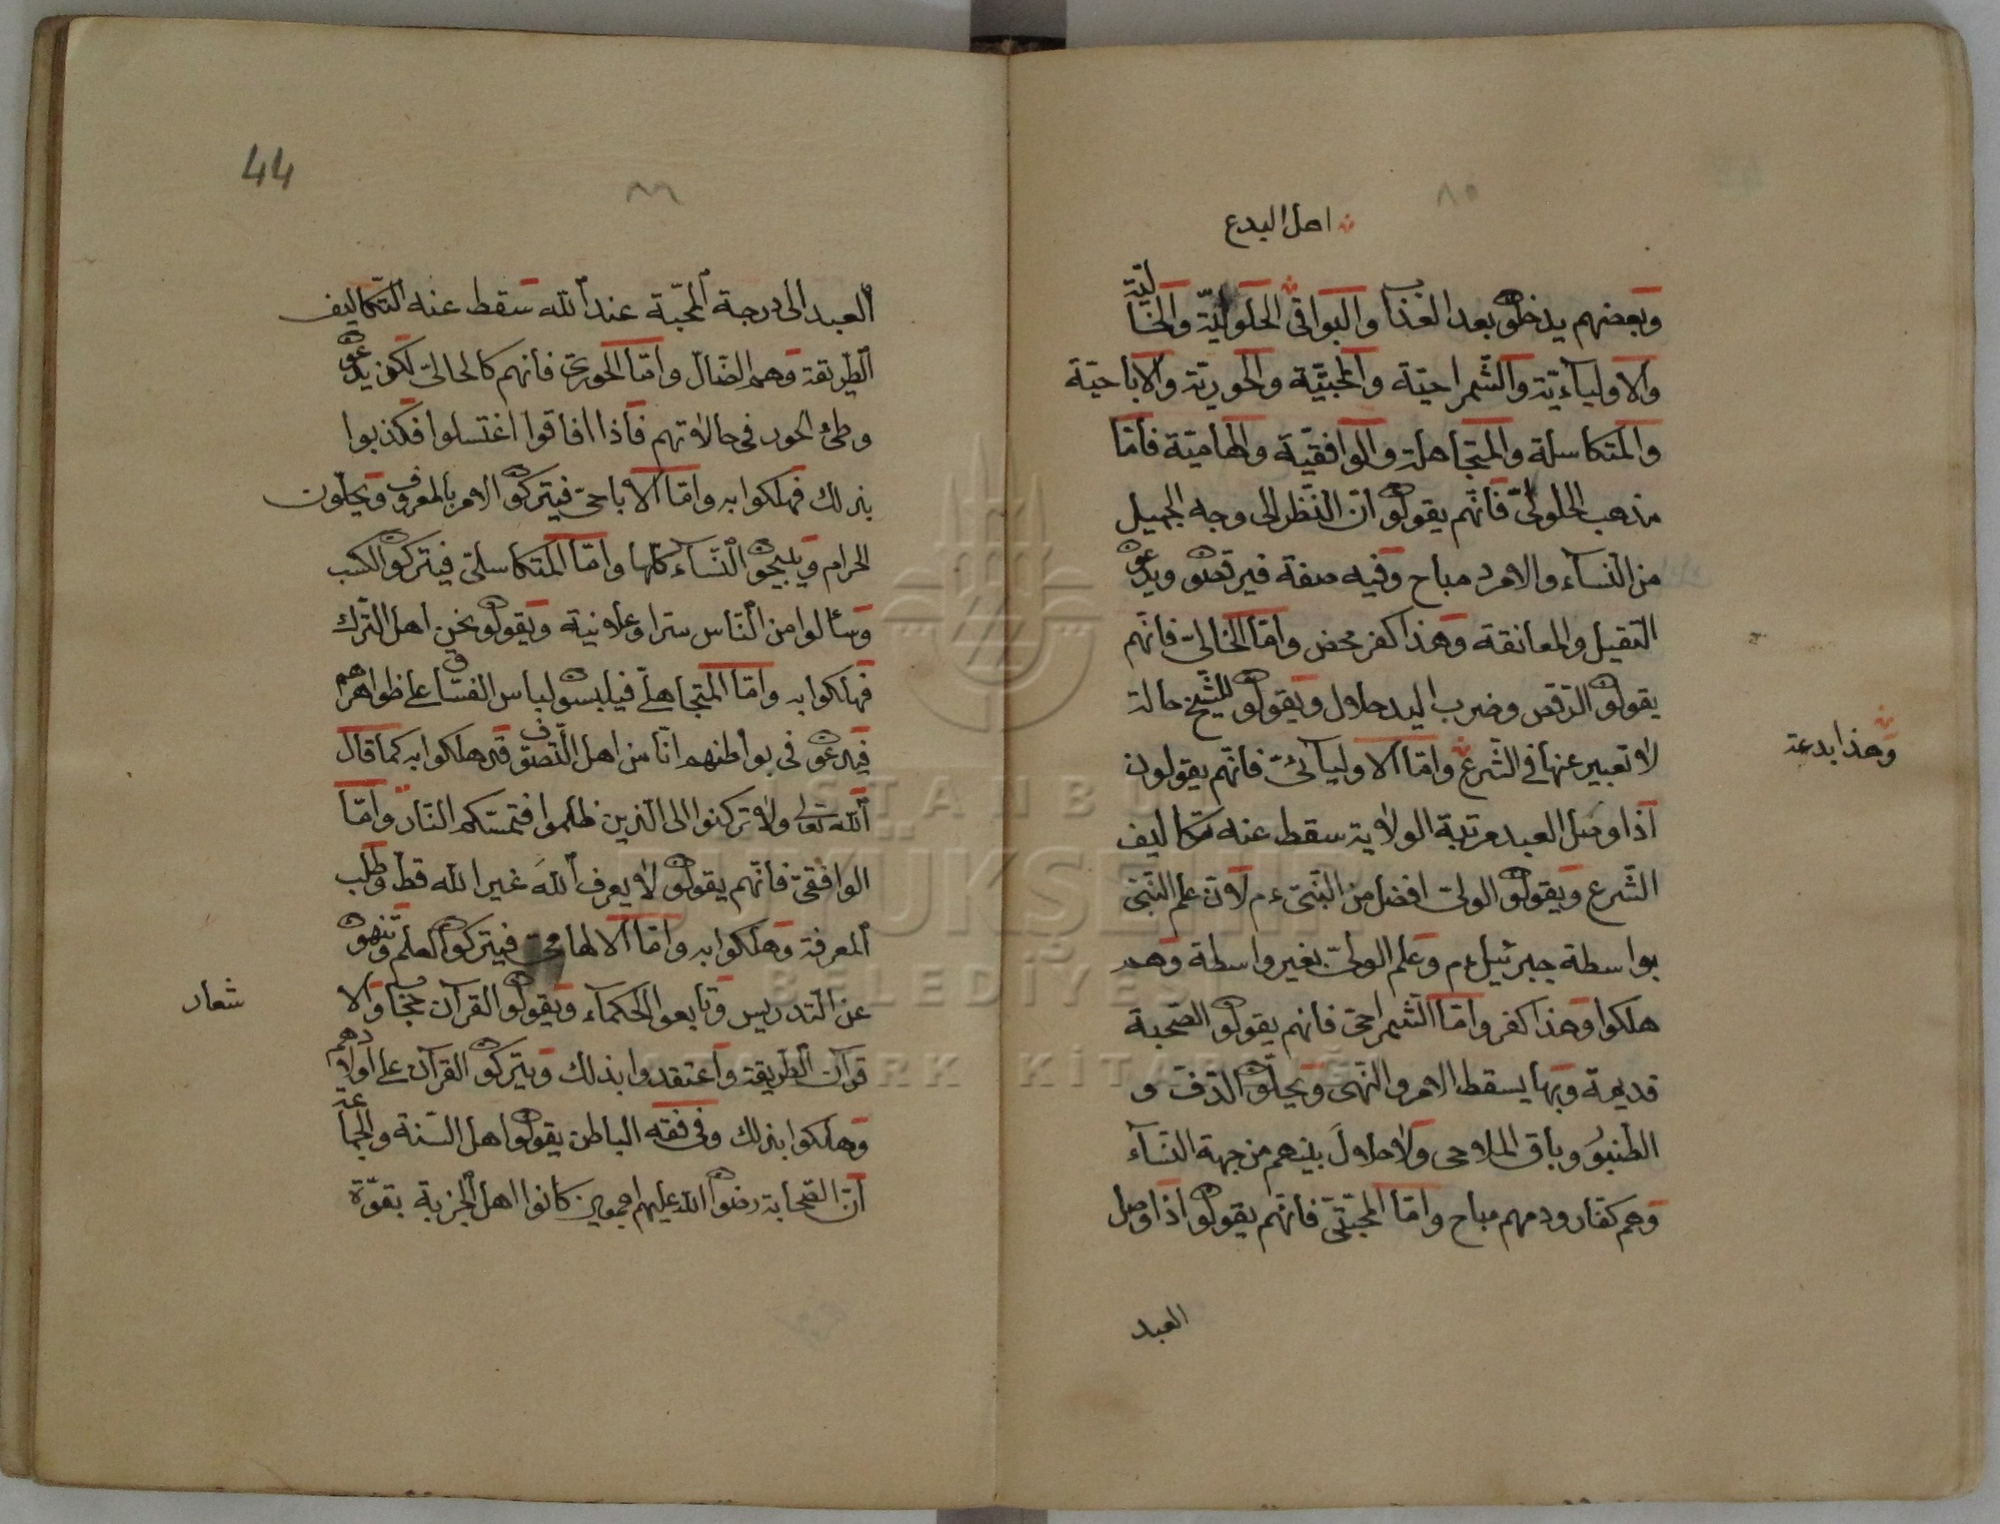 ٨٥
اهل البدع
وبعضهم يدخلون بعد العذاب والبواقي الحلولية والخالية
والاوليائية والشمراخية والمحبية والحورية والاباحية
والمتكاسلة والمتجاهلة والوافقية والهامية فأمّا
مذهب الحلوليّ فأنّهم يقولون انّ النّظر الى وجه الجميل
من النّساء والامرد مباح وفيه صفة فيرقصون ويدعون
التقبيل والمعانقة وهذا كفر محض وامّا الخاليّ فانّهم
يقولون الرّقص وضرب اليد حلال ويقولون للشّيخ حالة
لا تعبير عنها في الشّرع وامّا الاوليائىّ فانّهم يقولون
وهذا بدعة
اذا وصل العبد مرتبة الولاية سقط عنه تكاليف
الشّرع ويقولون الولىّ افضل من النّبىّ ءم لانّ علم النّبىّ
بواسطة جبرئيل ءم وعلم الولىّ بغير واسطة وهم
هلكوا وهذا كفر وامّا الشّمراخىّ فانهم يقولون الصّحبة
قديمة وبها يسقط الامر والنّهى ويحلّون الدّفّ و
الطّنبور وباقى الملاهى ولا حلال بينهم من جهة النّساء
وهم كفّار ودمهم مباح وامّا المحبّىّ فانّهم يقولون اذا وصل
العبد
44
٨٦
العبد الى درجة المحبّة عند الله سقط عنه التّكاليف
الطّريقة وهم الضّال وامّا الحورىّ فانهم كالحالىّ لكن يدعون
وطئ الحور في حالاتهم فأذا افاقوا اغتسلوا فكذبوا
بذلك فهلكوا به وامّا الاباحىّ فيتركون الامر بالمعروف ويحلّون
الحرام ويبيحون النّساء كلّها وامّا المتكاسلىّ فيتركون الكسب
وسألوا من النّاس سرا وعلانية ويقولون نحن اهل التّرك
فهلكوا به وامّا المتجاهلىّ فيلبسون لباس الفسّاق على ظواهرهم
فيدعون في بواطنهم انّا من اهل التّصوّف قد هلكوا به كما قال
الله تعالى ولا تركنوا الى الذين ظلموا فتمسّكم النّار وامّا
الوافقىّ فأنّهم يقولون لا يعرف الله غير الله قطّ وطلب
المعرفة وهلكوا به وامّا الالهامىّ فيتركون العلم وينهون
عن التّدريس وتابعوا الحكماء ويقولون القرآن حجاب والا
شعار
قرآن الطّريقة واعتقدوا بذلك ويتركون القرآن على اولادهم
وهلكوا بذلك وفى فقه الباطن يقولون اهل السّنة والجماعة
انّ الصّحابة رضوان الله عليهم اجمعين كانوا اهل الجزبة بقوّة